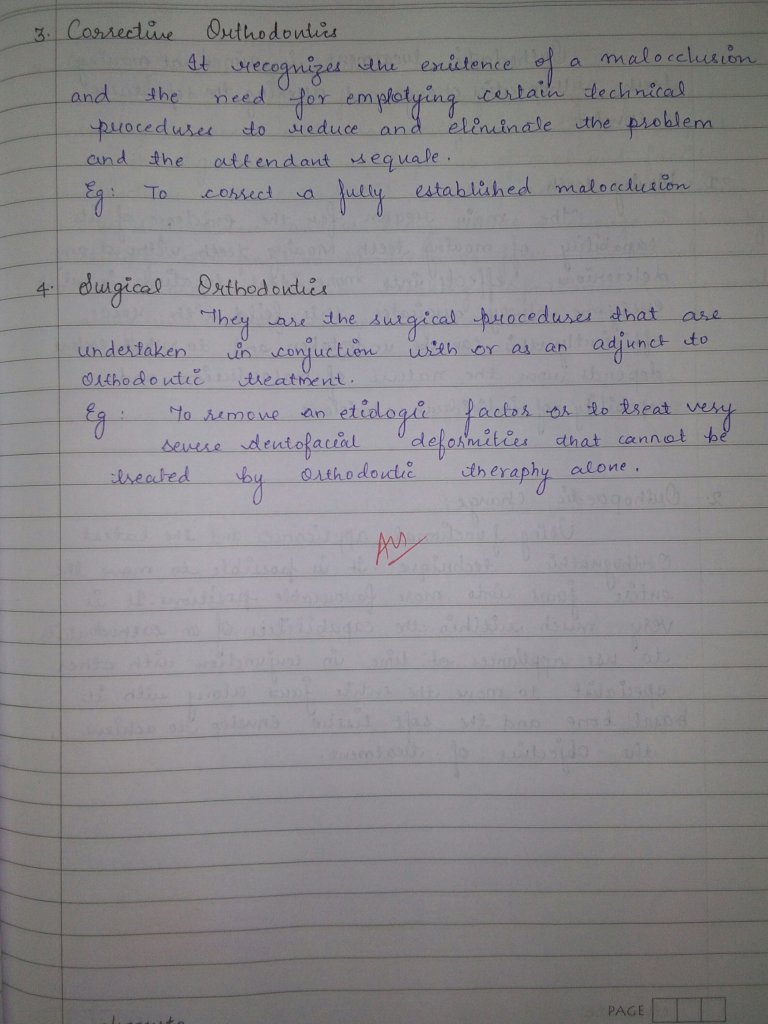 3. Corrective Orthodontics
It recognizes the existence of a malocclusion
and the need for emplotying certain technical
procedures to reduce and eliminate the problem
and the attendant sequale.
Eg: To correct a fully established malocclusion
4. Surgical Orthodontics
They are the surgical procedures that are
undertaken in conjuction with or as an adjunct to
Orthodontic treatment.
Eg : To remove an etiologic factor or to treat very
severe dentofacial deformities that cannot be
treated by Orthodontic theraphy alone.
PAGE